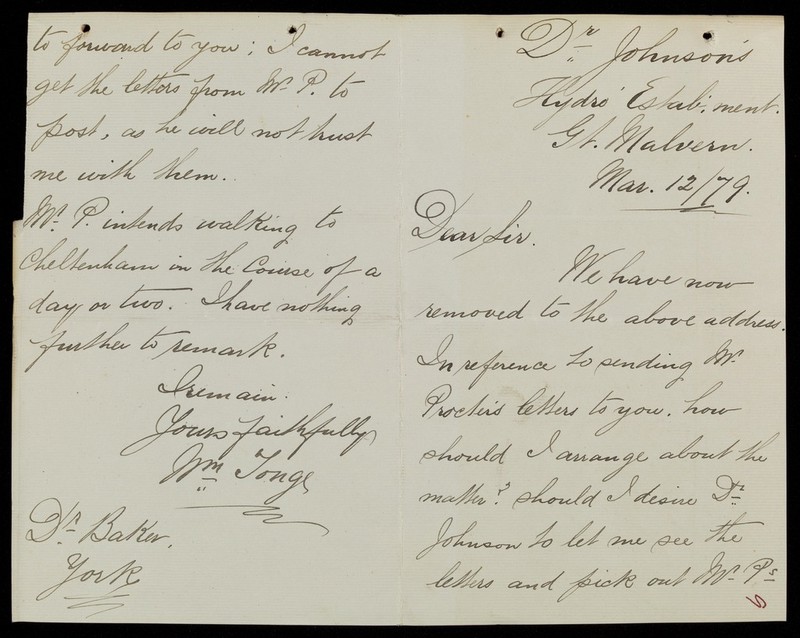 Dr Johnson's
Hydro' Estab;ment.
Gt. Malvern.
Mar. 12/79.
Dear Sir.
We have now
removed to the above address.
In reference to sending Mr
Procter's letters to you. how
should I arrange about the
matter? should I desire Dr
Johnson to let me see the
letters and pick out Mr Ps
to forward to you; I cannot
get the letters from Mr P. to
post, as he will not trust
me with them..
Mr P. intends walking to
Cheltenham in the Course of a
day or two. I have nothing
further to remark.
I remain.
Yours faithfully
Wm Tonge
Dr Baker.
York